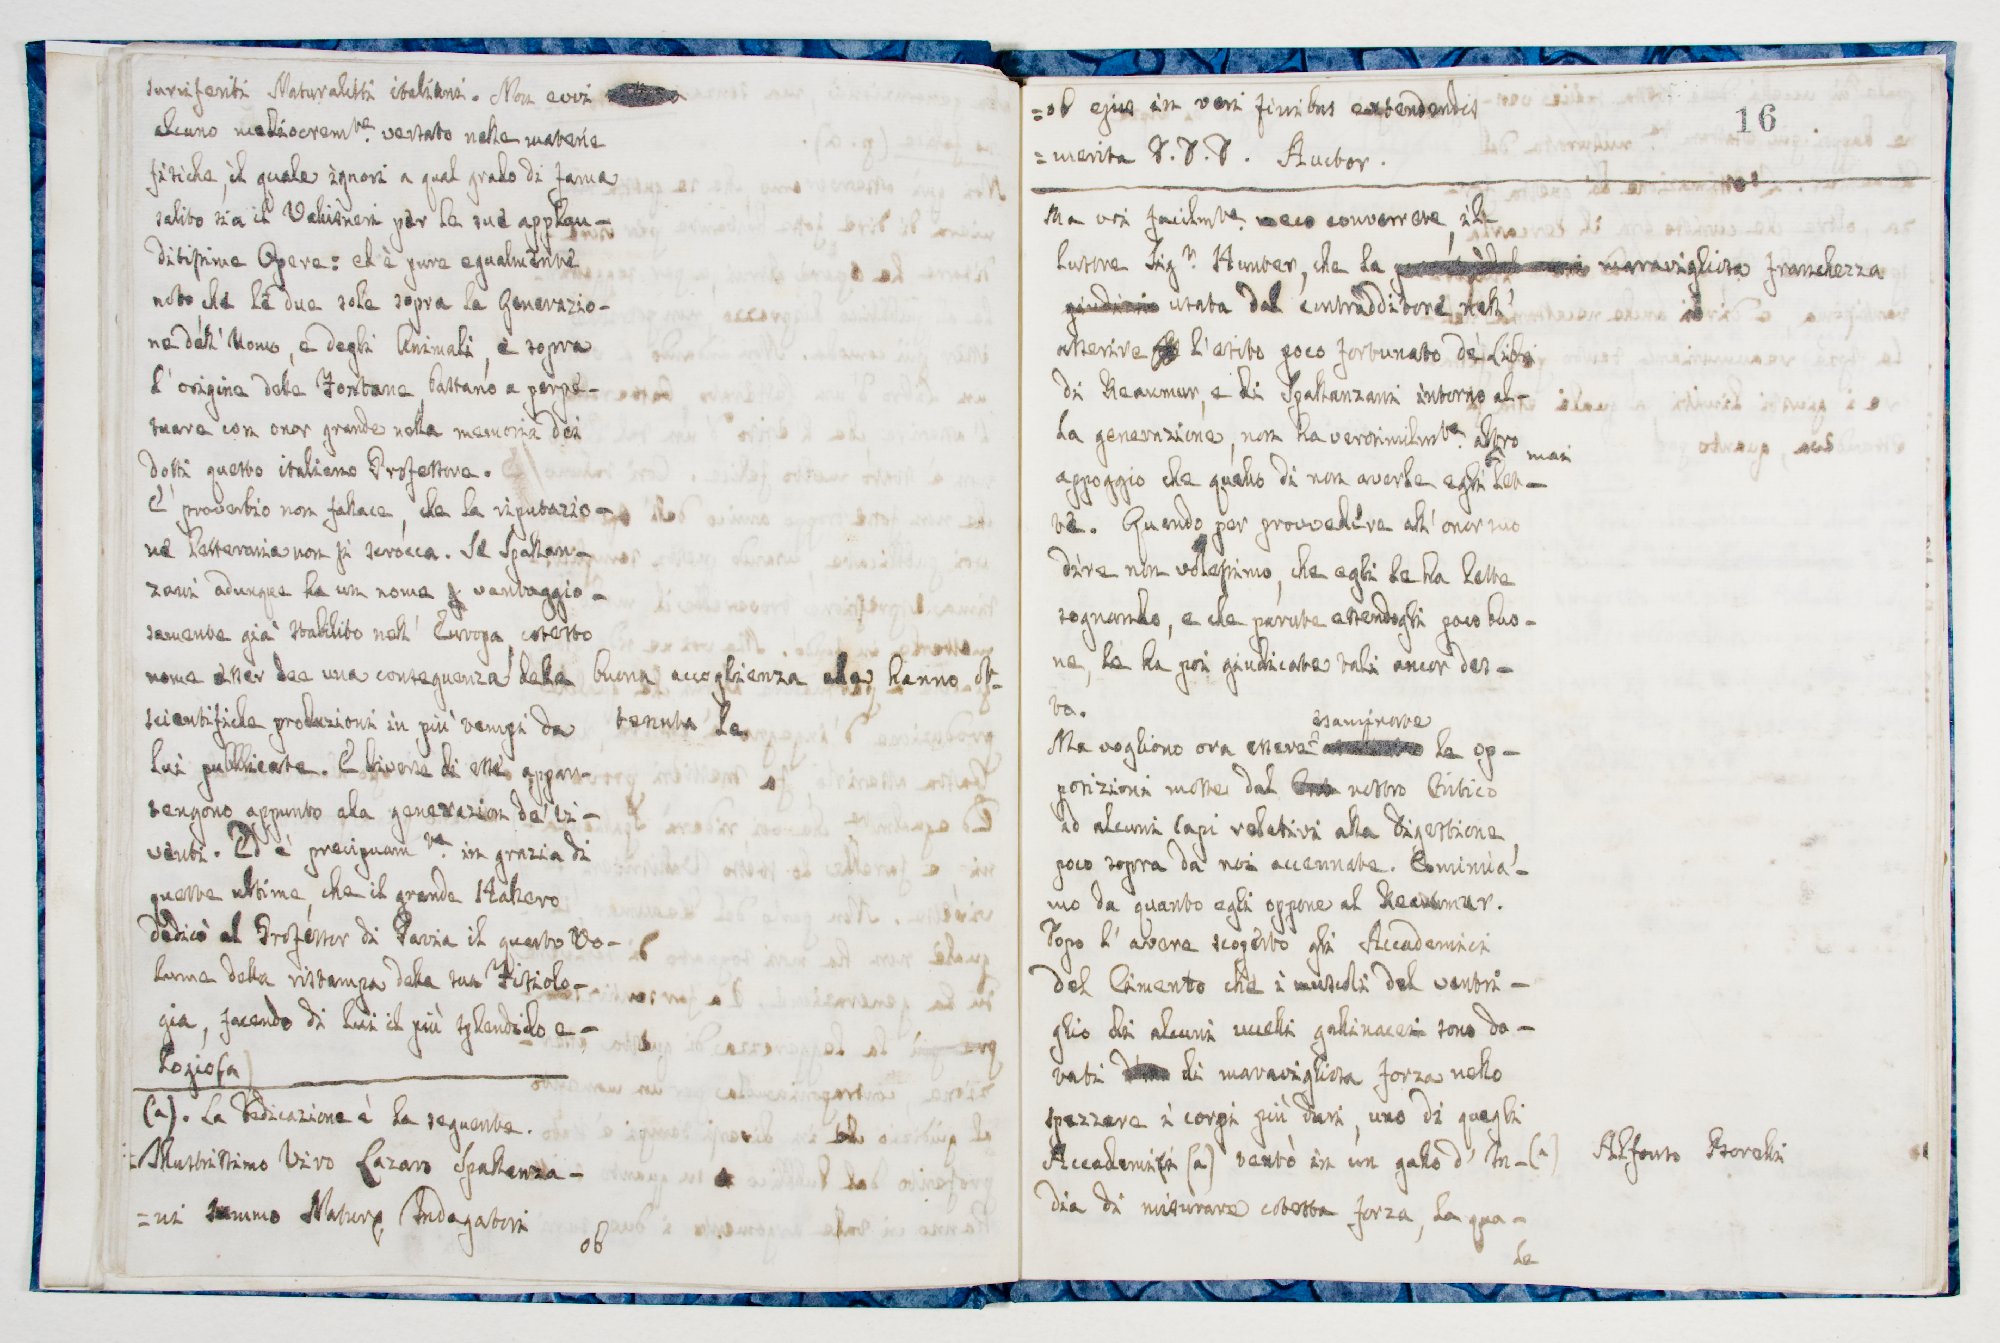 surriferiti Naturalisti italiani. Non evvi
alcuno mediocremte. versato nelle materie
fisiche, il quale ignori a qual grado di fama
salito sia il Valisneri per le sue applau-
ditissime Opere: ed è pure egualmente
noto che le due sole sopra la Generazio-
ne dell' Uomo, e degli Animali, e sopra
l' origine delle Fontane, bastano a perpe-
tuare con onor grande nella memoria dei
dotti questo italiano Professore.
E' proverbio non fallace, che la riputazio-
ne letteraria non si scrocca. Se Spallan-
zani adunque ha un nome vantaggio-
samente già stabilito nell' Europa, cotesto
nome esser dee una conseguenza della buona accoglienza che hanno ot-
tenuta le
scientifiche produzioni in più tempi da
lui pubblicate. E diverse di esse appar-
tengono appunto alla generazion de' vi-
venti. Ed è precipuamte. in grazia di
queste ultime, che il grande Hallero
dedicò al Professor di Pavia il quarto Vo-
lume della ristampa della sua Fisiolo-
gia, facendo di lui il più splendido e-
logio (a)
(a). La Dedicazione è la seguente.
= Illustrissimo Viro Lazaro Spallanza-
= ni summo Naturæ Indagatori
ob
16
= ob ejus in veri finibus extendendis
= merita D.D.D. Auctor.
Ma voi facilmte. meco converrete, il-
lustre Sigr. Hunter, che la maravigliosa franchezza
usata dal contraddittore nell'
asserire l' esito poco fortunato de' Libri
di Reaumur, e di Spallanzani intorno al-
la generazione, non ha verosimilmte. altro
appoggio che quello di non averle egli mai let-
te. Quando per provvedere all' onor suo
dire non volessimo, che egli le ha lette
sognando, e che parute essendogli poco buo-
ne, le ha poi giudicate tali ancor des-
to.
Ma vogliono ora essere esaminate le op-
posizioni mosse dal nostro Critico
ad alcuni Capi relativi alla Digestione
poco sopra da noi accennate. Cominia-
mo da quanto egli oppone al Reaumur.
Dopo l' avere scoperto gli Accademici
del Cimento che i muscoli del ventri-
glio di alcuni uccelli gallinacei sono do-
tati di maravigliosa forza nello
spezzare i corpi più duri, uno di quegli
Accademici (a) tentò in un gallo d' In- (a) Alfonso Borelli
dia di misurare cotesta forza, la qua-
le